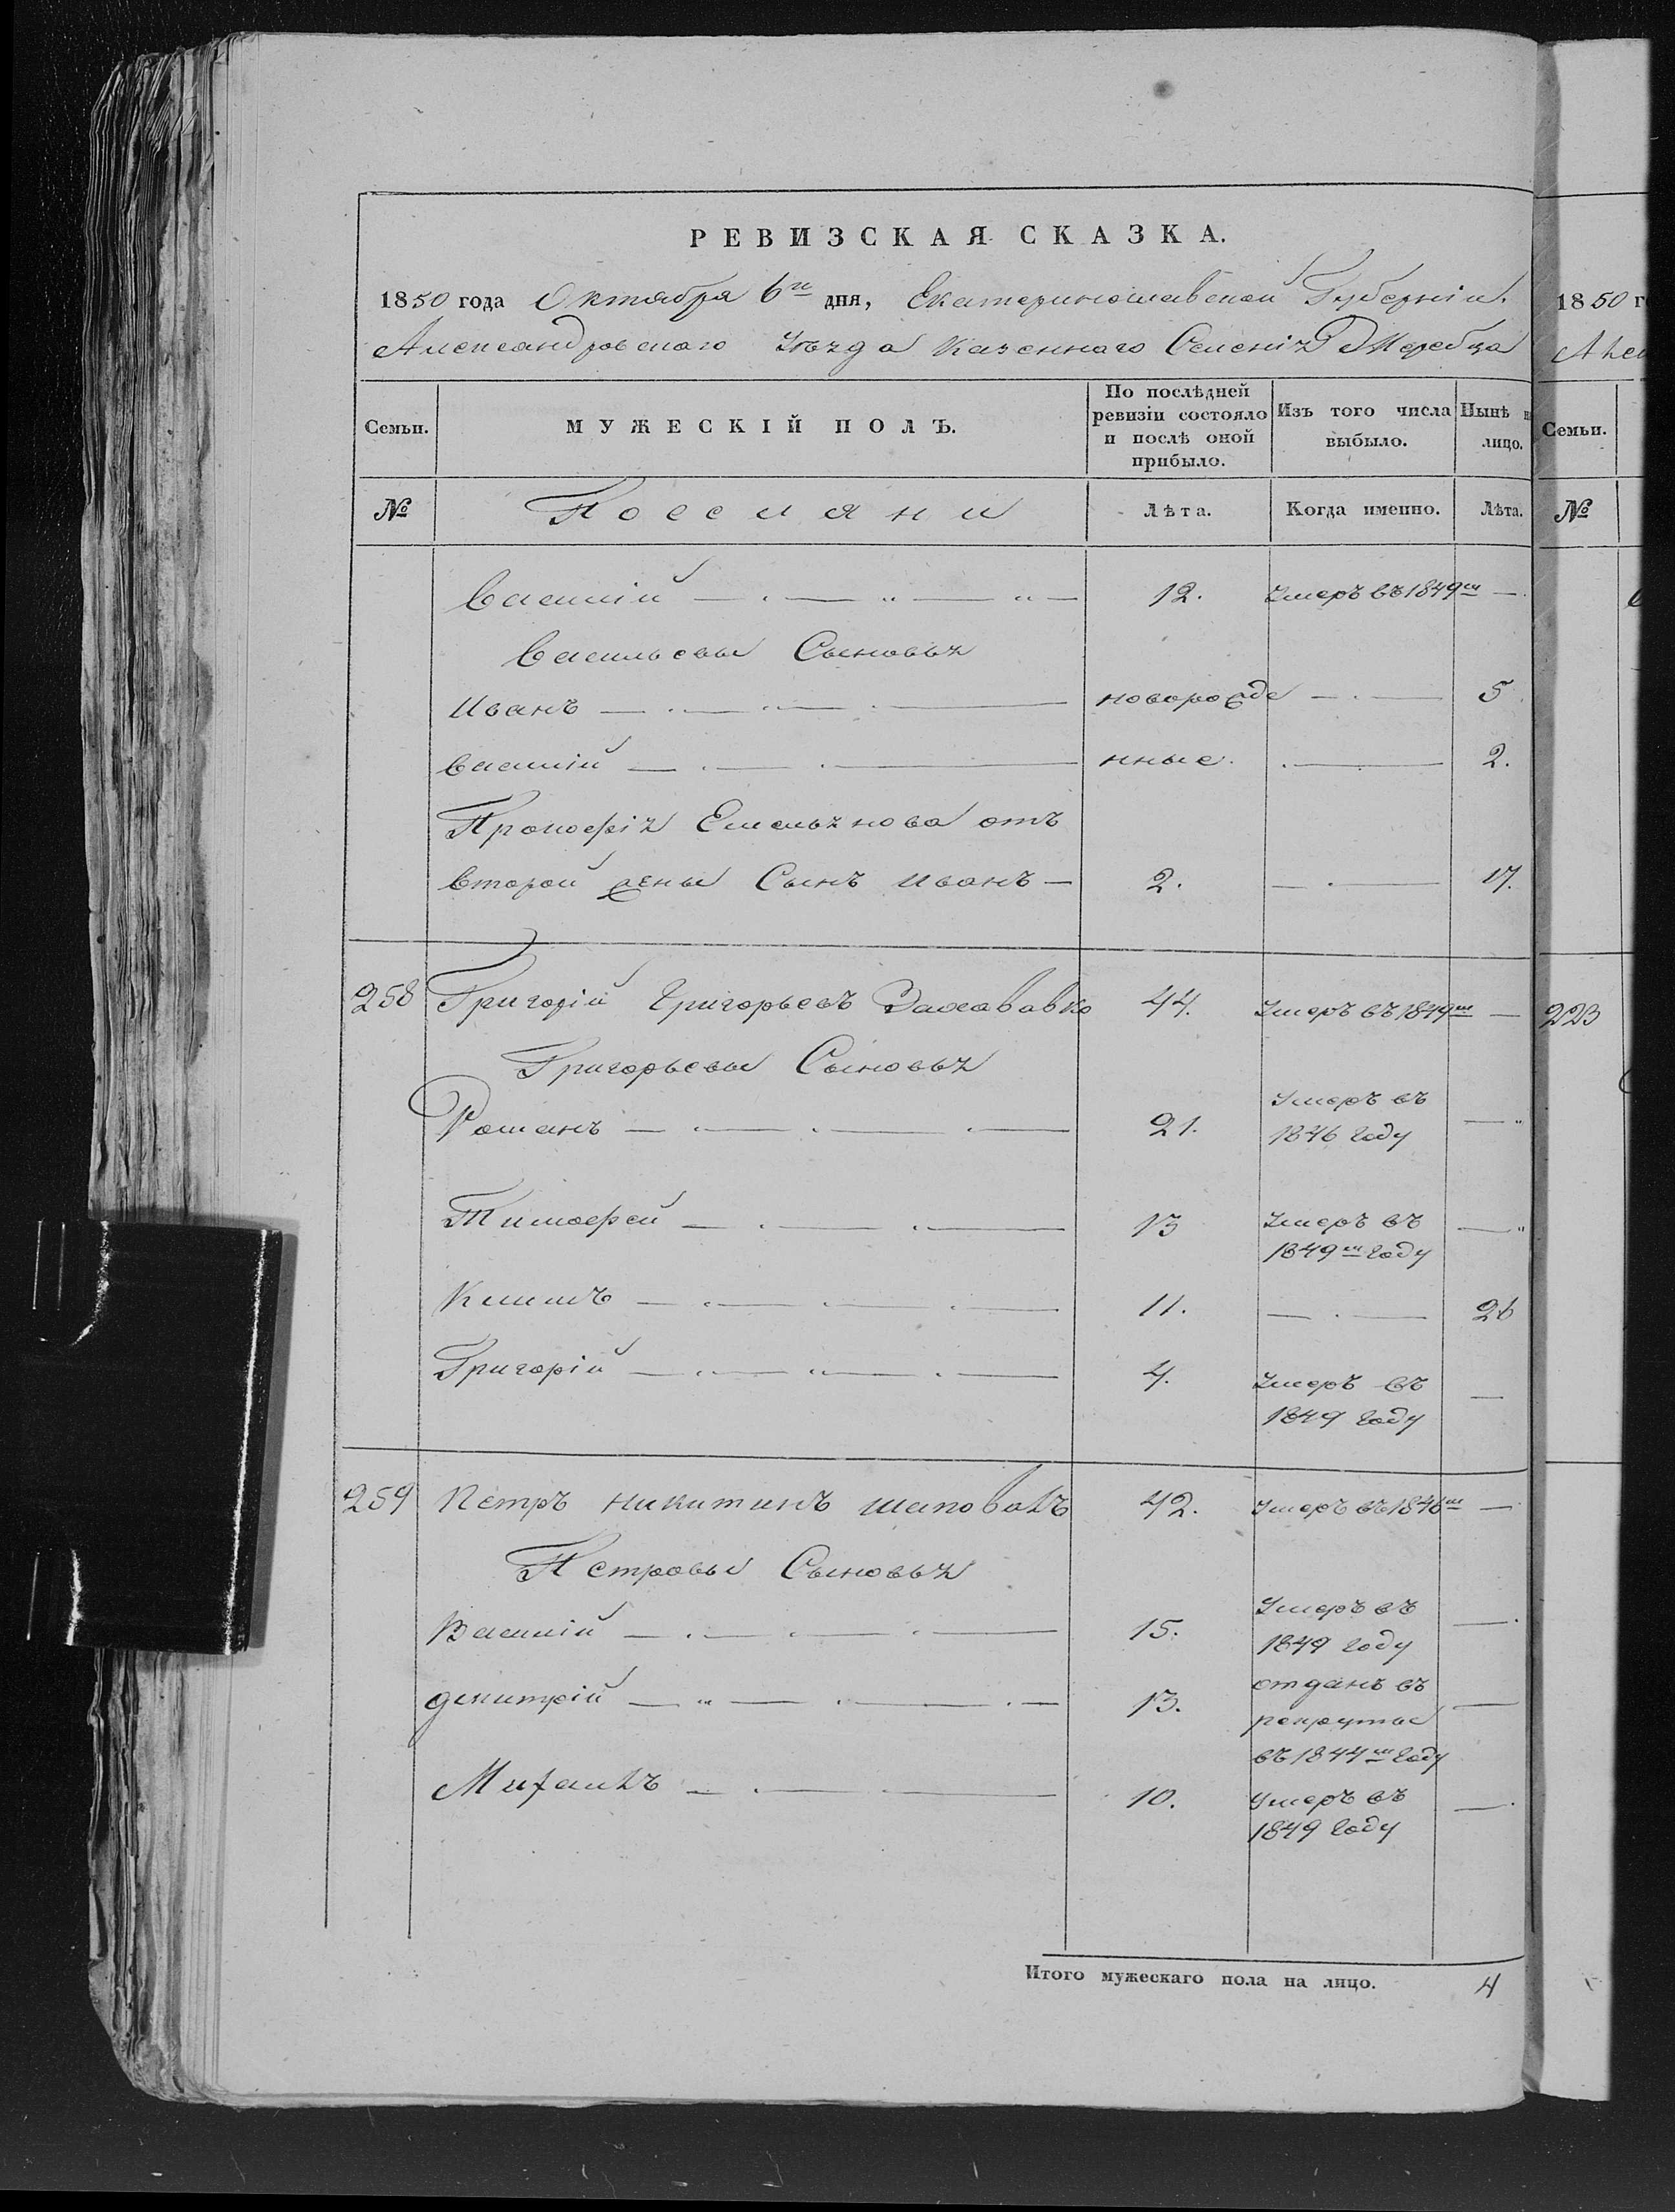 РЕВИЗСКАЯ СКАЗКА.
1850 года Октября 6го дня, Екатеринославской Губерніи.
Александровскаго Уѣзда Казеннаго Селенія Жеребца
Семьи. МУЖЕСКІЙ ПОЛЪ. По послѣдней ревизіи состояло и послѣ оной прибыло. Изъ того числа выбыло. Нынѣ на лицо.
№ Поселяни Лѣта. Когда именно. Лѣта.
Василій 12. Умеръ въ 1849м —
Васильевы Сыновья
Иванъ новорожде — 5
Василій нные. — 2.
Прокофія Емельянова отъ
второй жены Сынъ Иванъ 2. — 17.
258 Григорій Григорьевъ 44. Умеръ въ 1849м —
Григорьевы Сыновья
Романъ 21. Умеръ въ 1846 году —
Тимофей 13 Умеръ въ 1849м году —
Климъ 11. — 26
Григорій 4. Умеръ въ 1849 году —
259 Петръ Никитинъ Шаповалъ 42. Умеръ въ 1846м —
Петровы Сыновья
Василій 15. Умеръ въ 1849 году —
Димитрій 13. отданъ въ рекруты въ 1844м году —
Михаилъ 10. Умеръ въ 1849 году —
Итого мужескаго пола на лицо. 4
1850 г
Семьи.
№
223